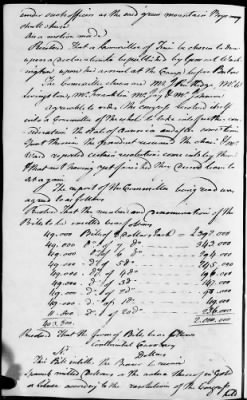 under such officers as the and grand mountain
shall think
On a motion made
Resolved That a Committee of five be chosen to draw
up a declaration to be published by General Wash
ington upon his arrival at the Camp before Boston
The Committee chosen Mr J Rutledge Mr W
Livingston, Mr Franklin Mr Jay & Mr Johnson
Agreeable to order the Congress resolved itself
into a Committee of the whole to take into farther con
sideration the state of America and after some time
spent therein the president resumed the chair & Mr
Ward reported certain resolutions come into by them
& that not having yet finished they desired leave to
sit again
The report of the Committee being read was
agreed to as follows
Resolved That the number and denomination of the
Bills to be emitted be as follows
49,000 Bills of 8 Dollars each 392,000
49,000 Do of 7 do 343,000
49,000 Do of 6 do 294,000
49,000 Do of 5 do 245,000
49,000 Do of 4 do 196,000
49,000 Do of 3 do 147,000
49,000 Do of 2 do 98,000
49,000 Do of 1 do 49,000
11,800 Do of 20 do 236,000
403,800 2,000,000
Resolved That the form of Bills be as follows
Continental Currency
No Dollars
This Bill entitles the Bearer to receive
Spanish milled Dollars or the value thereof in Gold
or Silver according to the resolutions of the Congress